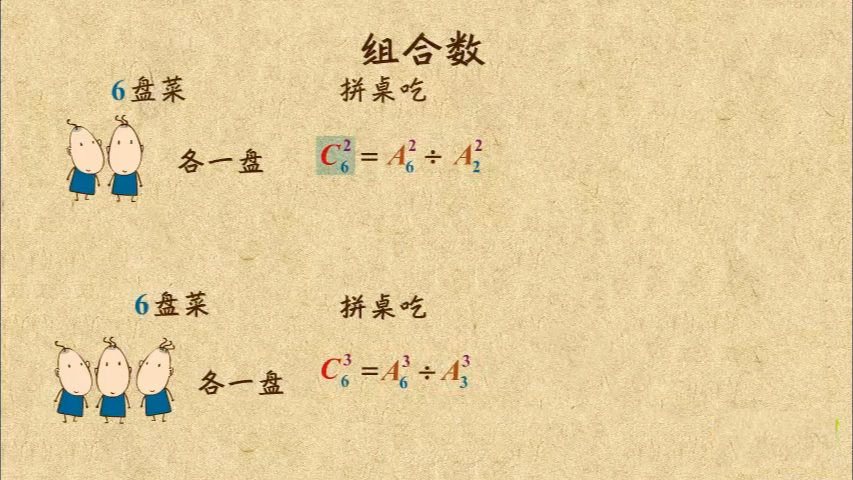 组合数
6盘菜 拼桌吃
各一盘 C₆² = A₆² ÷ A₂²
6盘菜 拼桌吃
各一盘 C₆³ = A₆³ ÷ A₃³